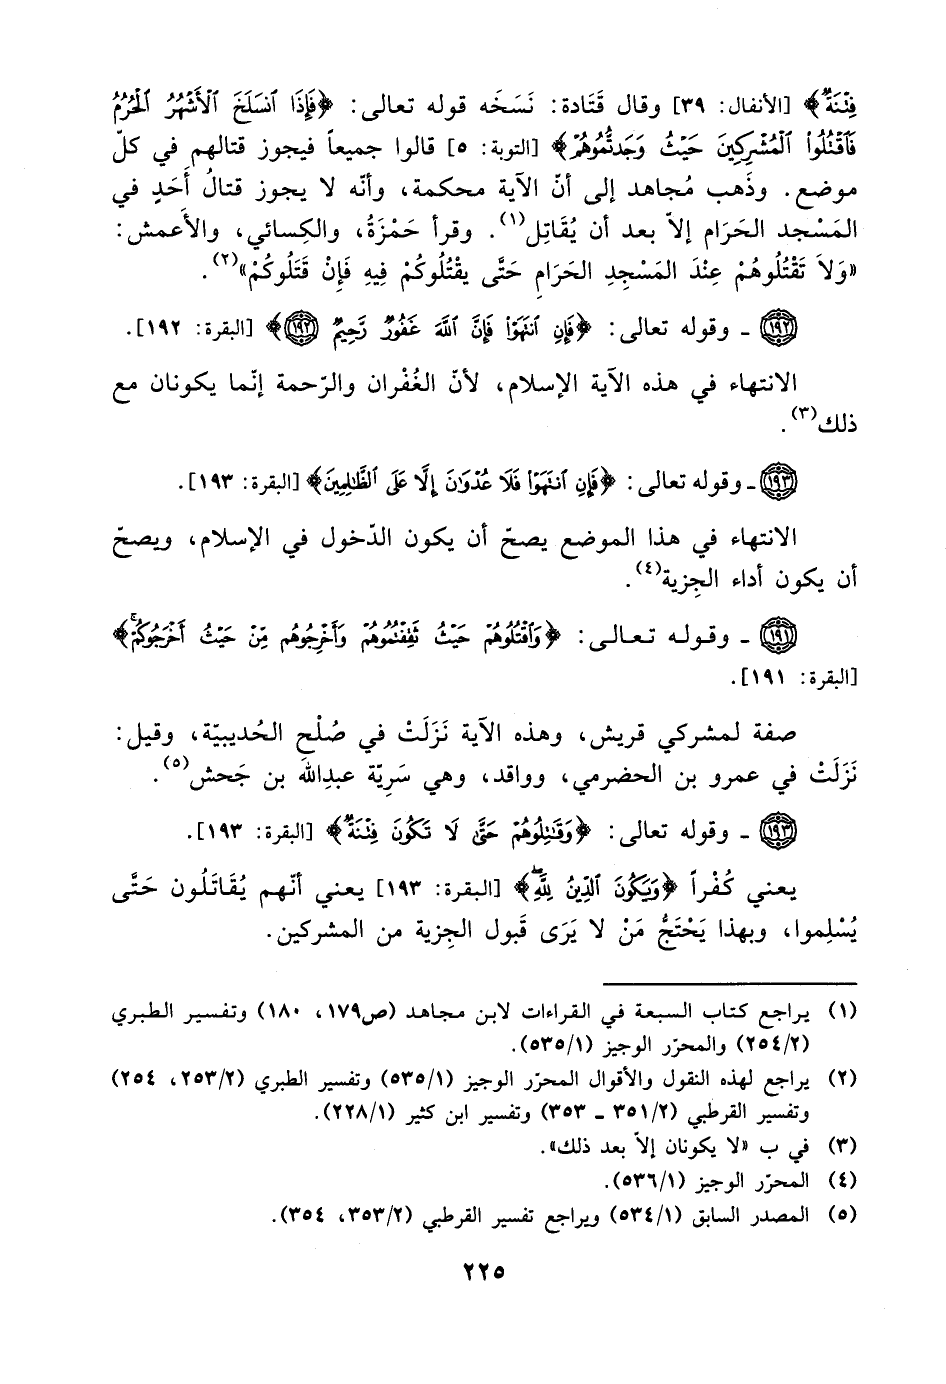 فِتْنَةٌ﴾ [الأنفال: ٣٩] وقال قَتَادة: نَسَخَه قوله تعالى: ﴿فَإِذَا ٱنسَلَخَ ٱلْأَشْهُرُ ٱلْحُرُمُ
فَٱقْتُلُوا۟ ٱلْمُشْرِكِينَ حَيْثُ وَجَدتُّمُوهُمْ﴾ [التوبة: ٥] قالوا جميعاً فيجوز قتالهم في كلّ
موضع. وذَهب مُجاهد إلى أنّ الآية محكمة، وأنّه لا يجوز قتالُ أَحَدٍ في
المَسْجد الحَرَام إلاّ بعد أن يُقَاتِل(١). وقرأ حَمْزَةُ، والكِسائي، والأعمش:
«وَلاَ تَقْتُلُوهُمْ عِنْدَ المَسْجِدِ الحَرَامِ حَتَّى يقْتُلُوكُمْ فِيهِ فَإِنْ قَتَلُوكُمْ»(٢).
(١٩٢) ـ وقوله تعالى: ﴿فَإِنِ ٱنتَهَوْا۟ فَإِنَّ ٱللَّهَ غَفُورٌ رَّحِيمٌ (١٩٢)﴾ [البقرة: ١٩٢].
الانتهاء في هذه الآية الإسلام، لأنّ الغُفْران والرّحمة إنّما يكونان مع
ذلك(٣).
(١٩٣) ـ وقوله تعالى: ﴿فَإِنِ ٱنتَهَوْا۟ فَلَا عُدْوَٰنَ إِلَّا عَلَى ٱلظَّٰلِمِينَ﴾ [البقرة: ١٩٣].
الانتهاء في هذا الموضع يصحّ أن يكون الدّخول في الإسلام، ويصحّ
أن يكون أداء الجِزية(٤).
(١٩١) ـ وقوله تعالى: ﴿وَٱقْتُلُوهُمْ حَيْثُ ثَقِفْتُمُوهُمْ وَأَخْرِجُوهُم مِّنْ حَيْثُ أَخْرَجُوكُمْ﴾
[البقرة: ١٩١].
صفة لمشركي قريش، وهذه الآية نَزَلَتْ في صُلْح الحُديبيّة، وقيل:
نَزَلَتْ في عمرو بن الحضرمي، وواقد، وهي سَرِيّة عبدالله بن جَحش(٥).
(١٩٣) ـ وقوله تعالى: ﴿وَقَٰتِلُوهُمْ حَتَّىٰ لَا تَكُونَ فِتْنَةٌ﴾ [البقرة: ١٩٣].
يعني كُفْراً ﴿وَيَكُونَ ٱلدِّينُ لِلَّهِ﴾ [البقرة: ١٩٣] يعني أنّهم يُقَاتَلُون حَتَّى
يُسْلِموا، وبهذا يَحْتَجُّ مَنْ لا يَرَى قَبول الجِزية من المشركين.
(١) يراجع كتاب السبعة في القراءات لابن مجاهد (ص١٧٩، ١٨٠) وتفسير الطبري
(٢/٢٥٤) والمحرّر الوجيز (١/٥٣٥).
(٢) يراجع لهذه النقول والأقوال المحرّر الوجيز (١/٥٣٥) وتفسير الطبري (٢/٢٥٣، ٢٥٤)
وتفسير القرطبي (٢/٣٥١ ـ ٣٥٣) وتفسير ابن كثير (١/٢٢٨).
(٣) في ب «لا يكونان إلاّ بعد ذلك».
(٤) المحرّر الوجيز (١/٥٣٦).
(٥) المصدر السابق (١/٥٣٤) ويراجع تفسير القرطبي (٢/٣٥٣، ٣٥٤).
٢٢٥